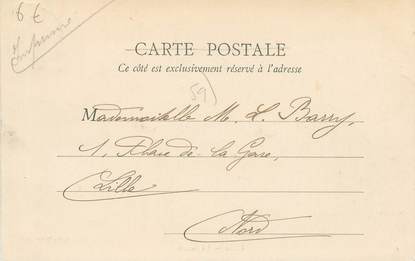 6 €
CARTE POSTALE
Ce côté est exclusivement réservé à l'adresse
59)
Mademoiselle M. L. Barry,
1, Place de la Gare,
Lille
Nord